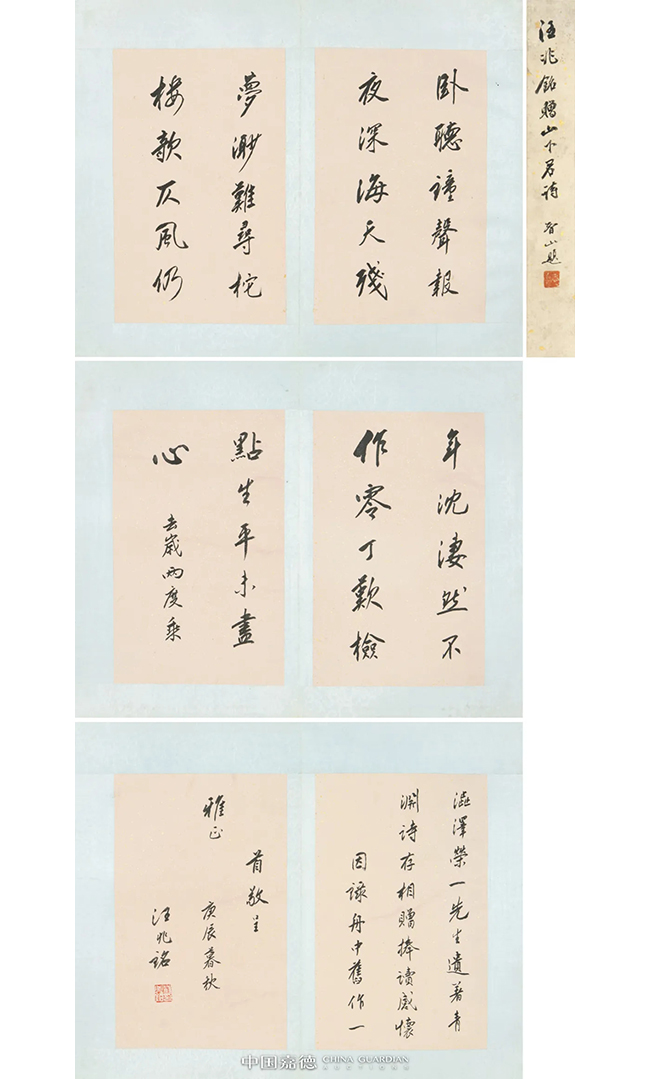 臥聽鐘聲報
夜深海天殘
夢渺難尋柁
樓欹仄風仍
汪兆銘贈山下君詩
山題
年沈淒然不
作零丁歎檢
點生平未盡
心
去歲兩度乘
澁澤榮一先生遺著青
淵詩存相贈捧讀感懷
因錄舟中舊作一
首敬呈
雅正
庚辰暮秋
汪兆銘
中国嘉德 CHINA GUARDIAN
AUCTIONS